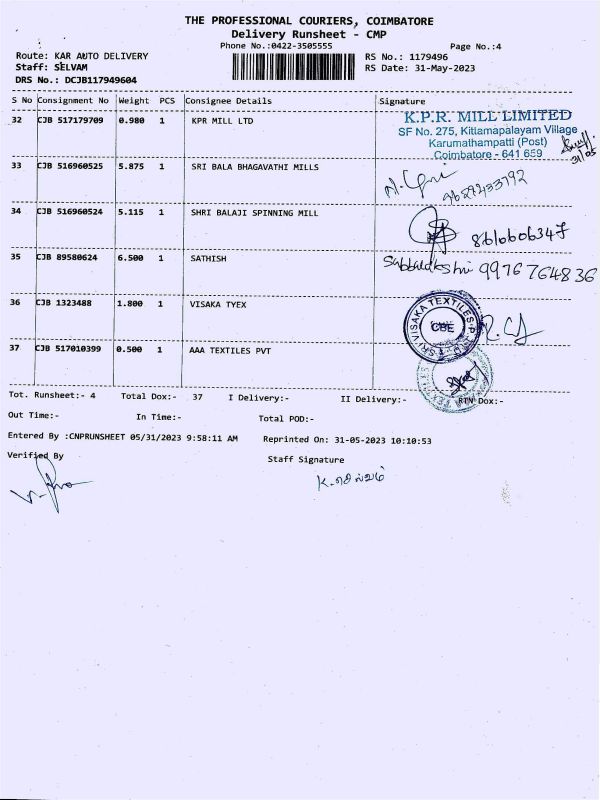 THE PROFESSIONAL COURIERS, COIMBATORE
Delivery Runsheet - CMP
Phone No.:0422-3505555 Page No.:4
Route: KAR AUTO DELIVERY RS No.: 1179496
Staff: SELVAM RS Date: 31-May-2023
DRS No.: DCJB117949604
S No Consignment No Weight PCS Consignee Details Signature
32 CJB 517179709 0.980 1 KPR MILL LTD
K.P.R. MILL LIMITED
SF No. 275, Kittamapalayam Village
Karumathampatti (Post)
Coimbatore - 641 659
31/05
33 CJB 516960525 5.875 1 SRI BALA BHAGAVATHI MILLS
34 CJB 516960524 5.115 1 SHRI BALAJI SPINNING MILL
35 CJB 89580624 6.500 1 SATHISH
9976764836
36 CJB 1323488 1.800 1 VISAKA TYEX
SRI VISAKA TEXTILES
CBE
37 CJB 517010399 0.500 1 AAA TEXTILES PVT
Tot. Runsheet:- 4 Total Dox:- 37 I Delivery:- II Delivery:- RTN Dox:-
Out Time:- In Time:- Total POD:-
Entered By :CNPRUNSHEET 05/31/2023 9:58:11 AM Reprinted On: 31-05-2023 10:10:53
Verified By Staff Signature
K. செல்வம்